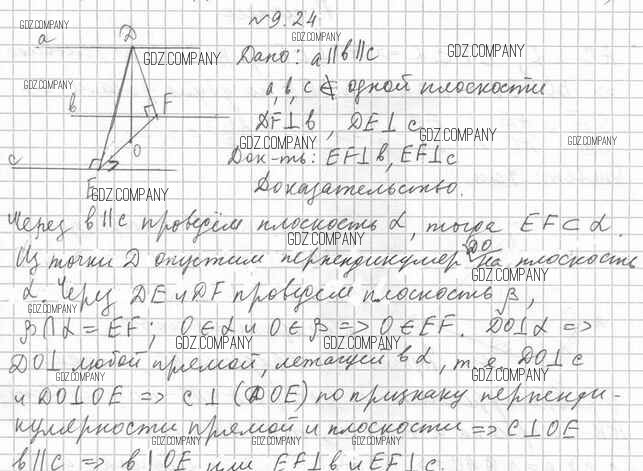 №9.24
GDZ.COMPANY
D
a
GDZ.COMPANY
Дано: a||b||c
GDZ.COMPANY
GDZ.COMPANY
a, b, c ⊄ одной плоскости
b
F
DF⊥b, DE⊥c
GDZ.COMPANY
GDZ.COMPANY
GDZ.COMPANY
O
c
Док-ть: EF⊥b, EF⊥c
E
GDZ.COMPANY
Доказательство.
Через b||c проведём плоскость α, тогда EF⊂α.
GDZ.COMPANY
DO
Из точки D опустим перпендикуляр на плоскость
GDZ.COMPANY
α. Через DE и DF проведём плоскость β,
GDZ.COMPANY
β∩α = EF; O∈α и O∈β => O∈EF. DO⊥α =>
GDZ.COMPANY
GDZ.COMPANY
DO⊥ любой прямой, лежащей в α, т.е. DO⊥c
GDZ.COMPANY
GDZ.COMPANY
и DO⊥OE => c⊥(DOE) по признаку перпенди-
кулярности прямой и плоскости => c⊥OE
GDZ.COMPANY
GDZ.COMPANY
GDZ.COMPANY
b||c => b⊥OE или EF⊥b и EF⊥c.